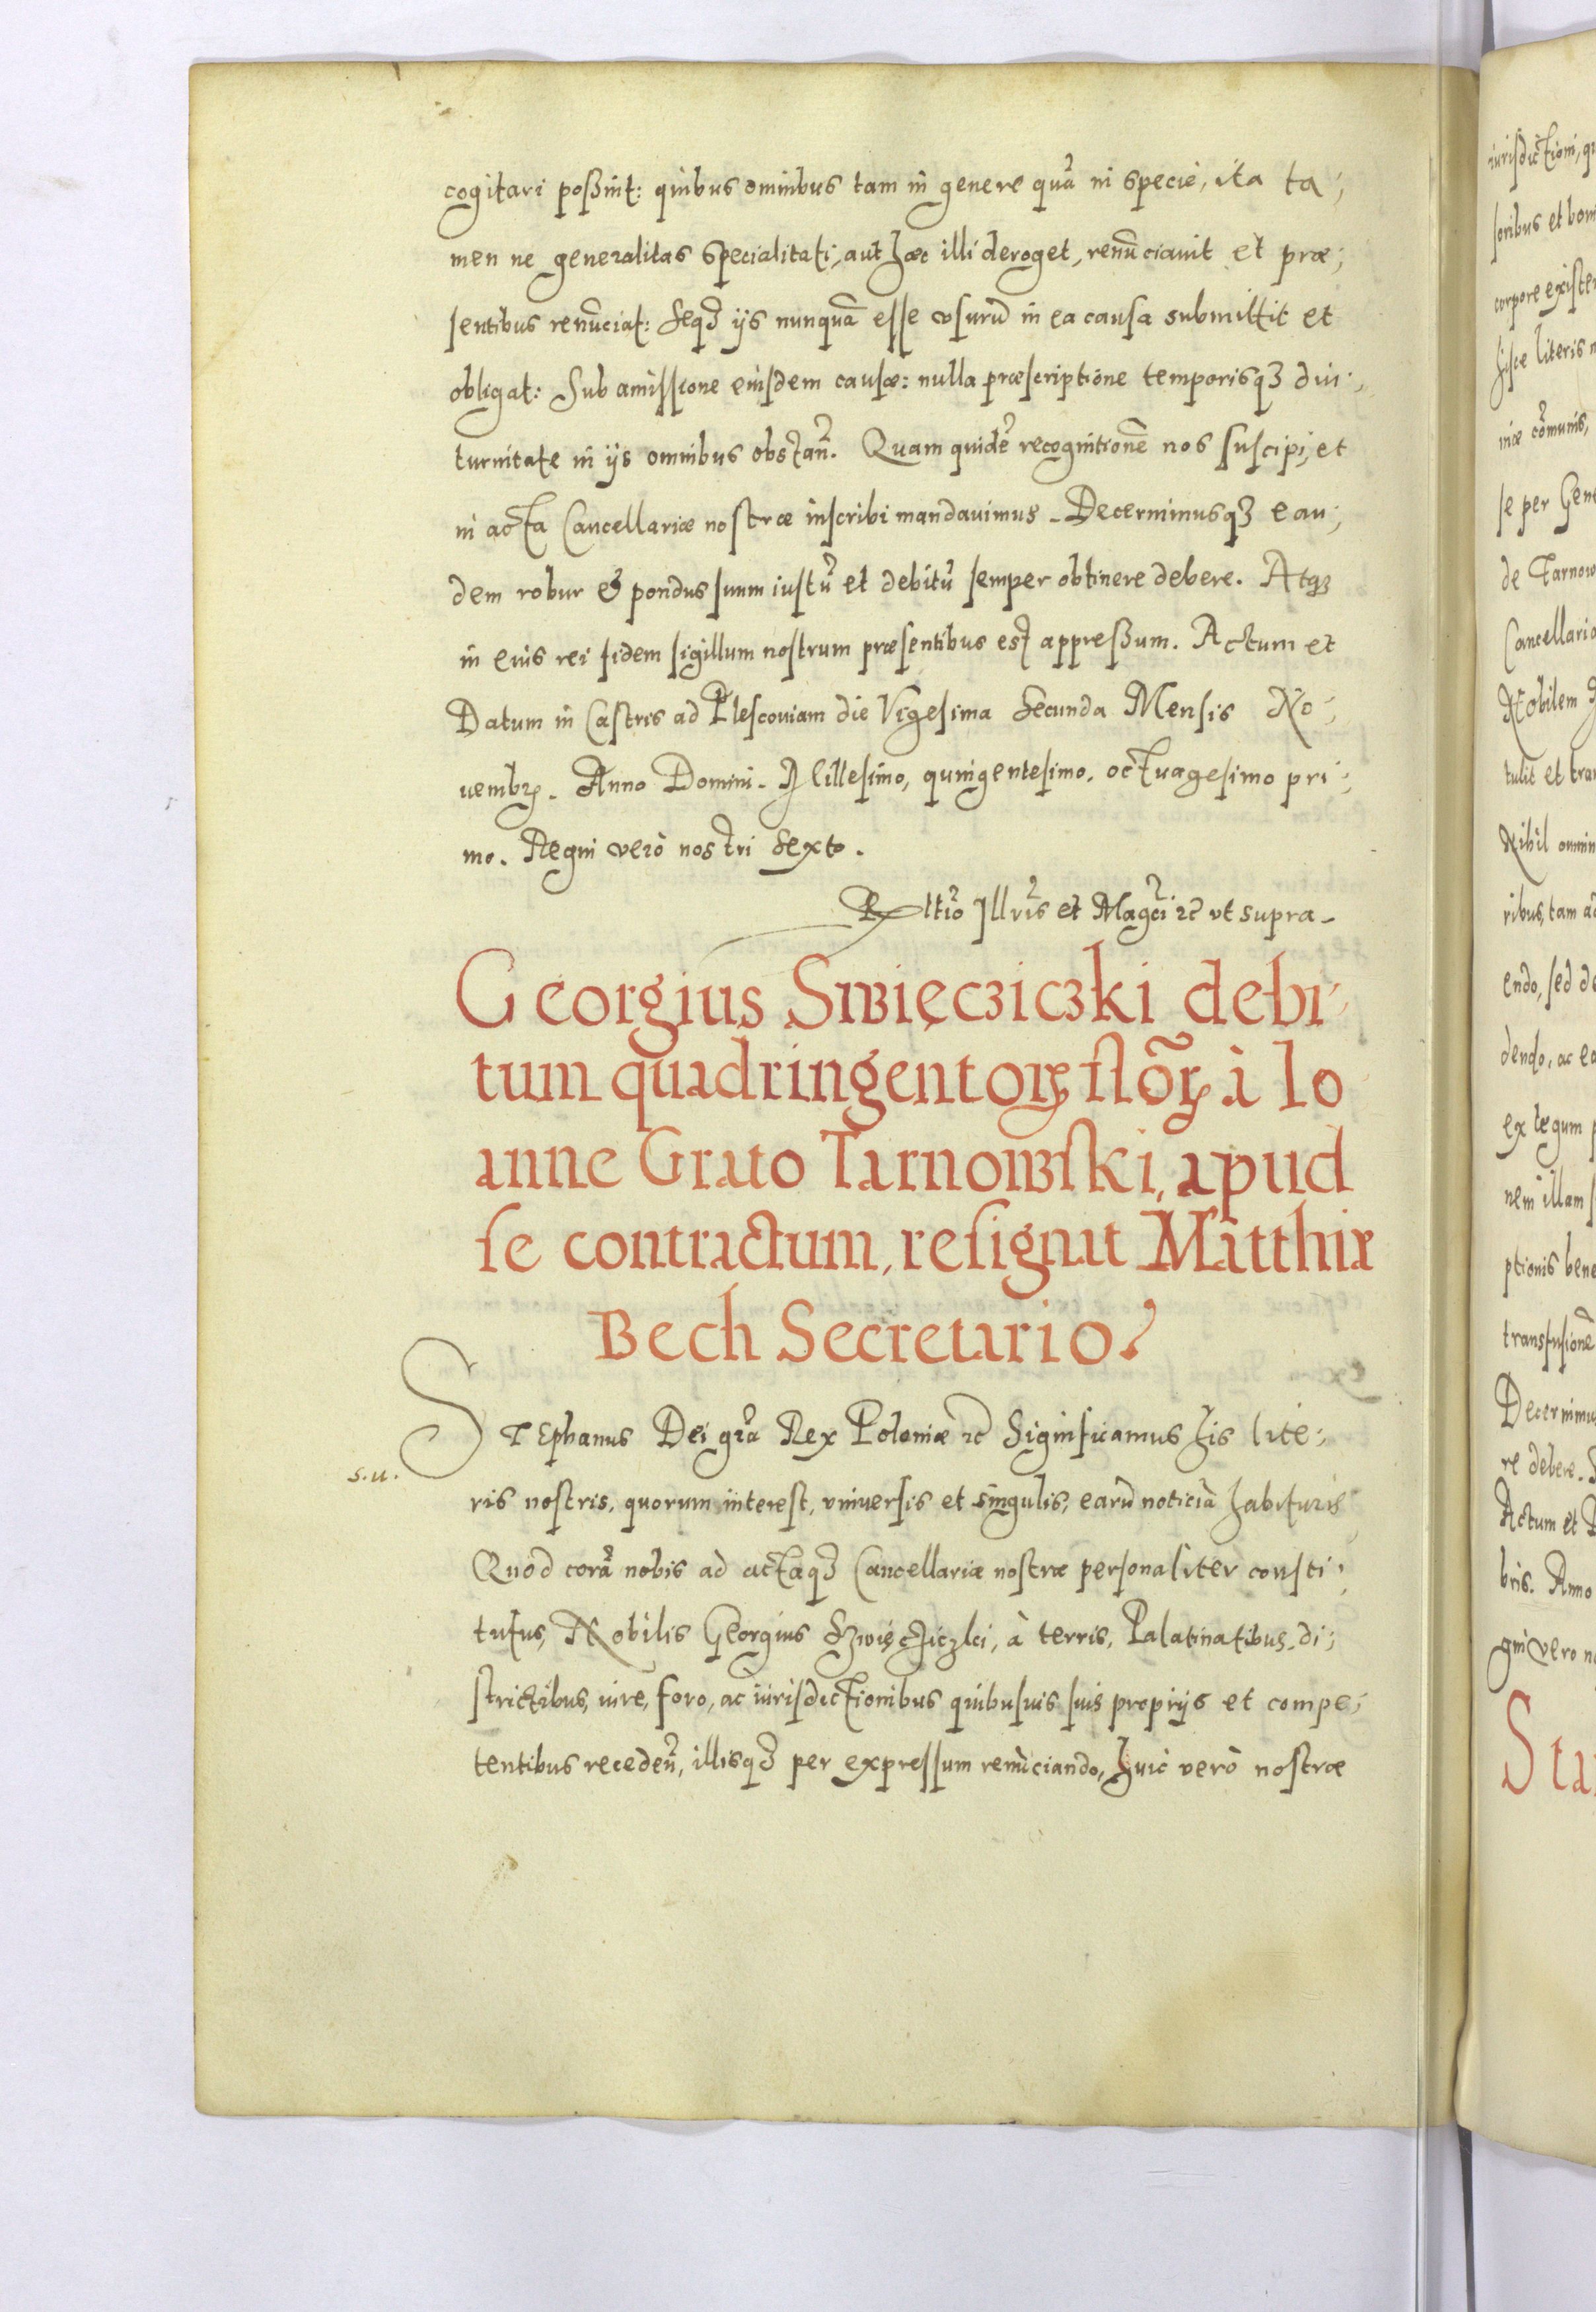 cogitari poßint: quibus omnibus tam in genere quā in specie, ita ta;
men ne generalitas specialitati, aut hæc illi deroget, renūciauit et præ;
sentibus renūciat: Seqʒ ijs nunquā esse vsurū in ea causa submittit et
obligat: Sub amissione eiusdem causæ: nulla præscriptione temporisqʒ diu;
turnitate in ijs omnibus obstañ. Quam quidē recognitionē nos suscipi, et
in acta Cancellariæ nostræ inscribi mandauimus. Decernimusqʒ ean;
dem robur & pondus suum iustū et debitū semper obtinere debere. Atqʒ
in eius rei fidem sigillum nostrum præsentibus est appreßum. Actum et
Datum in Castris ad Plescouiam die Vigesima Secunda Mensis No;
uembrꝭ. Anno Domini. Millesimo, quingentesimo, octuagesimo pri;
mo. Regni verò nostri Sexto.
Rltio Illris et Magci ꝛc vt supra.
Georgius Swięcziczki debi
tum quadringentoꝝ floꝝ à Io
anne Grato Tarnowski, apud
se contractum, resignat Matthiæ
Bech Secretario.
STEphanus Dei gra Rex Poloniæ ꝛc Significamus his lite;
s.u.
ris nostris, quorum interest, vniuersis et singulis, earū noticiā habituris
Quod corā nobis ad actaqʒ Cancellariæ nostræ personaliter consti;
tutus, Nobilis Georgius Szwięcziczki, à terris, Palatinatibus, di;
strictibus, iure, foro, ac iurisdictionibus quibusuis suis proprijs et compe;
tentibus recedeñ, illisqʒ per expressum renūciando, huic verò nostræ
iurisdictioni,
soribus et
corpore
literis
cōmunis,
se per
de
Nobilem
tulit et
Nihil
ribus, tam
endo, sed
dendo, ac
ex legum
nem illam
ptionis
transfusionē
re debere.
Actum et
bris. Anno
gni vero